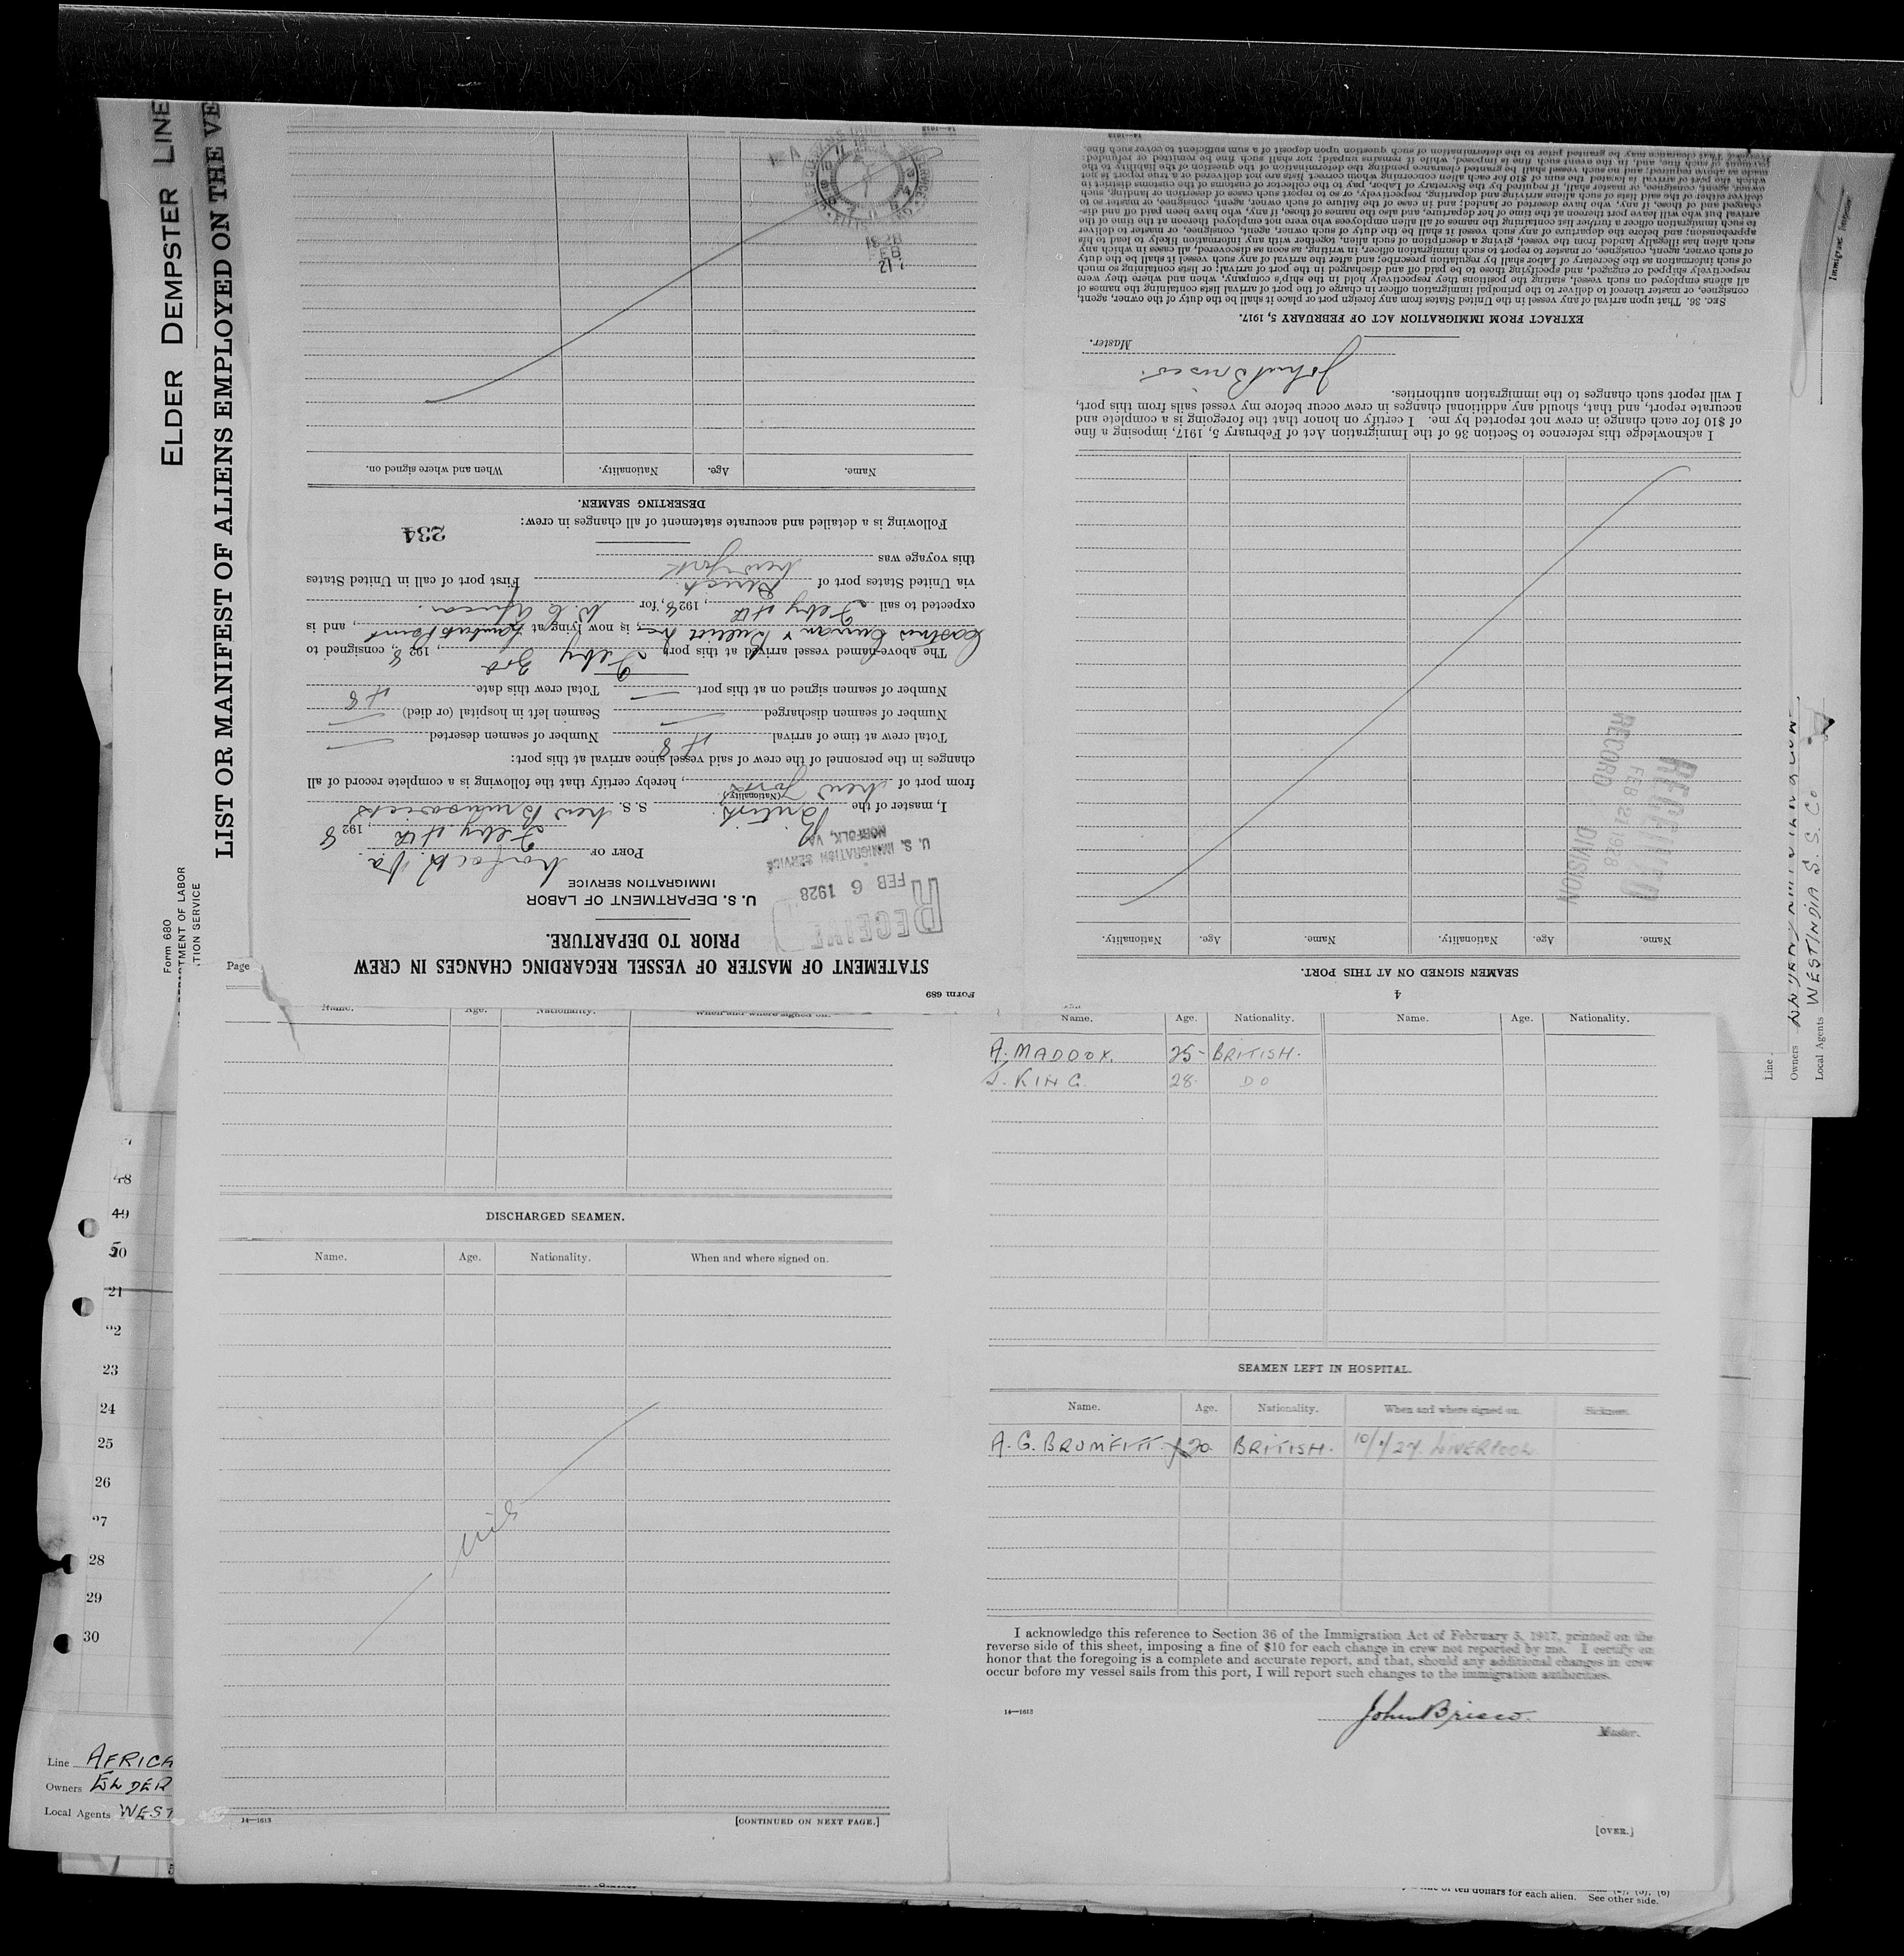 ELDER DEMPSTER LINE
LIST OR MANIFEST OF ALIENS EMPLOYED ON THE VE
Form 680
TION SERVICE
Page
Form 689
STATEMENT OF MASTER OF VESSEL REGARDING CHANGES IN CREW
PRIOR TO DEPARTURE.
U. S. DEPARTMENT OF LABOR
IMMIGRATION SERVICE
RECEIVED
FEB 6 1928
U. S. IMMIGRATION SERVICE
NORFOLK, VA.
PORT OF Norfolk Va.
Feby 4th, 1928
I, master of the British S. S. New Brunswick
(Nationality)
from port of New York, hereby certify that the following is a complete record of all
changes in the personnel of the crew of said vessel since arrival at this port:
Total crew at time of arrival 48 Number of seamen deserted
Number of seamen discharged Seamen left in hospital (or died)
Number of seamen signed on at this port Total crew this date 48
The above-named vessel arrived at this port Feby 3rd, 1928, consigned to
, is now lying at Lamberts Point, and is
expected to sail Feby 4th, 1928, for W. C. Africa
via United States port of Direct. First port of call in United States
this voyage was New York
Following is a detailed and accurate statement of all changes in crew:
234
DESERTING SEAMEN.
Name. Age. Nationality. When and where signed on.
1928
FEB
21
4
SEAMEN SIGNED ON AT THIS PORT.
Name. Age. Nationality. Name. Age. Nationality.
RECEIVED
FEB 21 1928
RECORD DIVISION
I acknowledge this reference to Section 36 of the Immigration Act of February 5, 1917, imposing a fine
of $10 for each change in crew not reported by me. I certify on honor that the foregoing is a complete and
accurate report, and that, should any additional changes in crew occur before my vessel sails from this port,
I will report such changes to the immigration authorities.
John Brisco.
Master.
EXTRACT FROM IMMIGRATION ACT OF FEBRUARY 5, 1917.
SEC. 36. That upon arrival of any vessel in the United States from any foreign port or place it shall be the duty of the owner, agent,
consignee, or master thereof to deliver to the principal immigration officer in charge of the port of arrival lists containing the names of
all aliens employed on such vessel, stating the positions they respectively hold in the ship's company, when and where they were
respectively shipped or engaged, and specifying those to be paid off and discharged in the port of arrival; or lists containing so much
of such information as the Secretary of Labor shall by regulation prescribe; and after the arrival of any such vessel it shall be the duty
of such owner, agent, consignee, or master to report to such immigration officer, in writing, as soon as discovered, all cases in which any
such alien has illegally landed from the vessel, giving a description of such alien, together with any information likely to lead to his
apprehension; and before the departure of any such vessel it shall be the duty of such owner, agent, consignee, or master to deliver
to such immigration officer a further list containing the names of all alien employees who were not employed thereon at the time of the
arrival but who will leave port thereon at the time of her departure, and also the names of those, if any, who have been paid off and dis-
charged, and of those, if any, who have deserted or landed; and in case of the failure of such owner, agent, consignee, or master so to
deliver either of the said lists of such aliens arriving and departing, respectively, or so to report such cases of desertion or landing, such
owner, agent, consignee, or master shall, if required by the Secretary of Labor, pay to the collector of customs of the customs district in
which the port of arrival is located the sum of $10 for each alien concerning whom correct lists are not delivered or a true report is not
made as above required; and no such vessel shall be granted clearance pending the determination of the question of the liability to the
payment of such fine, and, in the event such fine is imposed, while it remains unpaid; nor shall such fine be remitted or refunded:
Provided, That clearance may be granted prior to the determination of such question upon deposit of a sum sufficient to cover such fine.
Immigrant Inspector
Line
Owners
Local Agents WESTINDIA S. S. Co
Name. Age. Nationality. When and where signed on.
DISCHARGED SEAMEN.
Name. Age. Nationality. When and where signed on.
nil
14—1613
[CONTINUED ON NEXT PAGE.]
Name. Age. Nationality. Name. Age. Nationality.
A. MADDOX. 25- BRITISH.
J. KING 28. DO
SEAMEN LEFT IN HOSPITAL.
Name. Age. Nationality. When and where signed on. Sickness.
A. G. BRUMFITT 20. BRITISH. LIVERPOOL
I acknowledge this reference to Section 36 of the Immigration Act of February 5, 1917, printed on the
reverse side of this sheet, imposing a fine of $10 for each change in crew not reported by me. I certify on
honor that the foregoing is a complete and accurate report, and that, should any additional changes in crew
occur before my vessel sails from this port, I will report such changes to the immigration authorities.
14—1613
John Brisco.
Master.
[OVER.]
48
49
20
21
22
23
24
25
26
27
28
29
30
Line AFRICA
Owners ELDER
Local Agents WEST
of ten dollars for each alien. See other side.